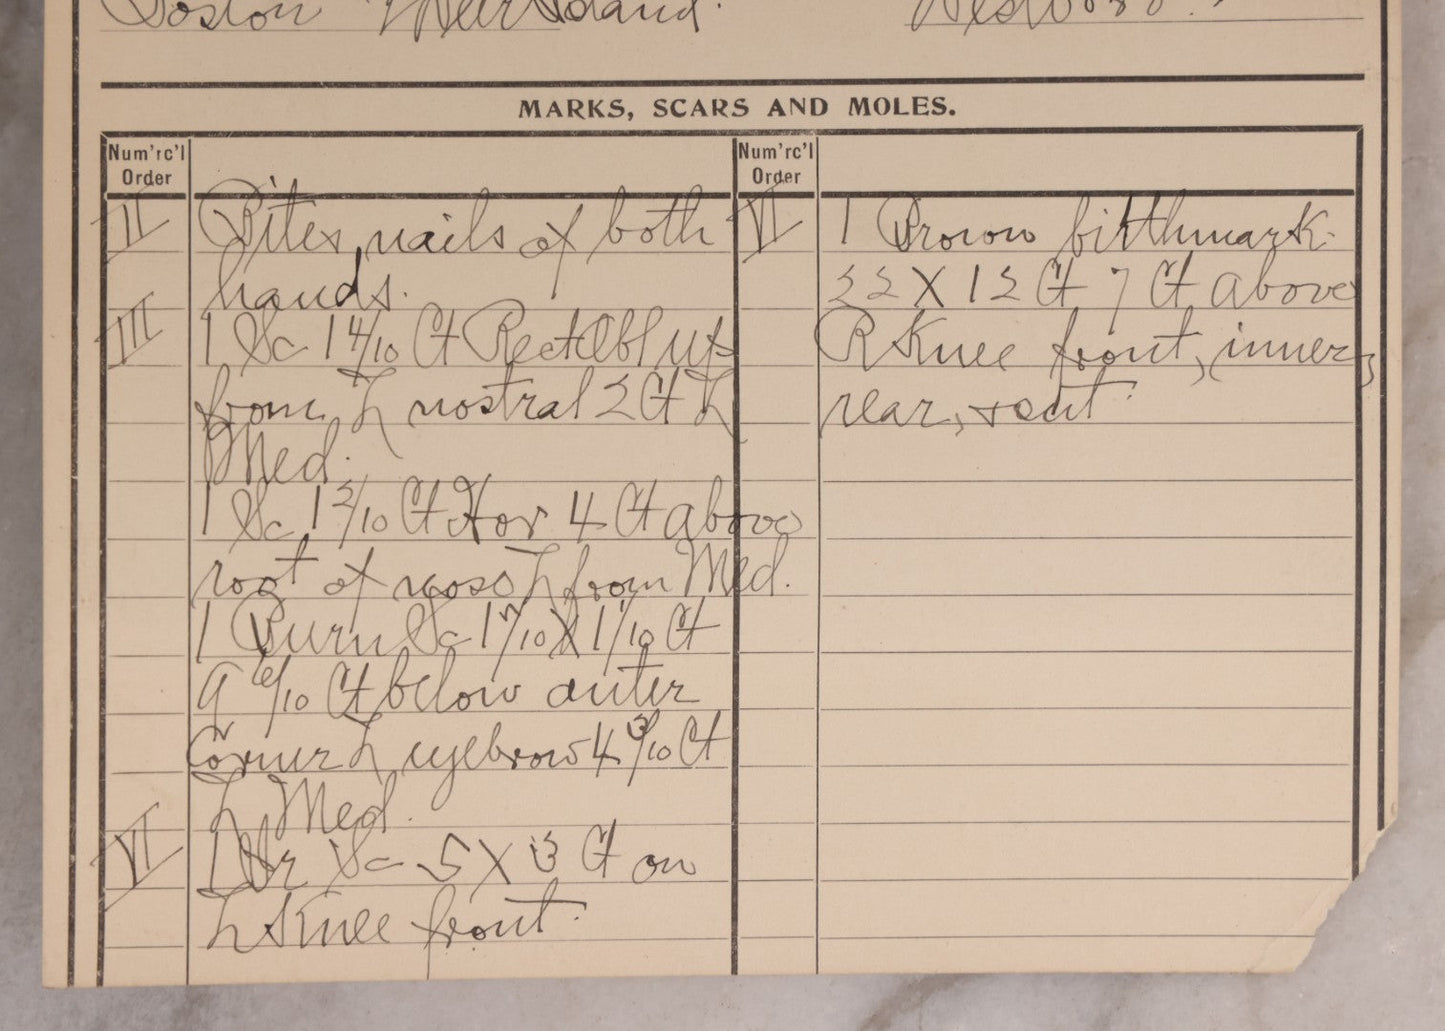 Boston Deer Island.
MARKS, SCARS AND MOLES.
Num'rc'l Order
II Bites nails of both
hands.
III 1 Sc 1 4/10 Ct Rect Obl up
from L nostral 2 Ct L
Med.
1 Sc 1 2/10 Ct Hor 4 Ct above
root of nose L from Med.
1 Burn Sc 1 7/10 X 1 1/10 Ct
9 6/10 Ct below outer
Corner L eyebrow 4 3/10 Ct
L Med.
VI 1 Sc 5 X 3 Ct on
L Knee front.
Num'rc'l Order
VI 1 Brown birthmark.
22 X 12 Ct 7 Ct above
R Knee front, inner,
rear, + out.